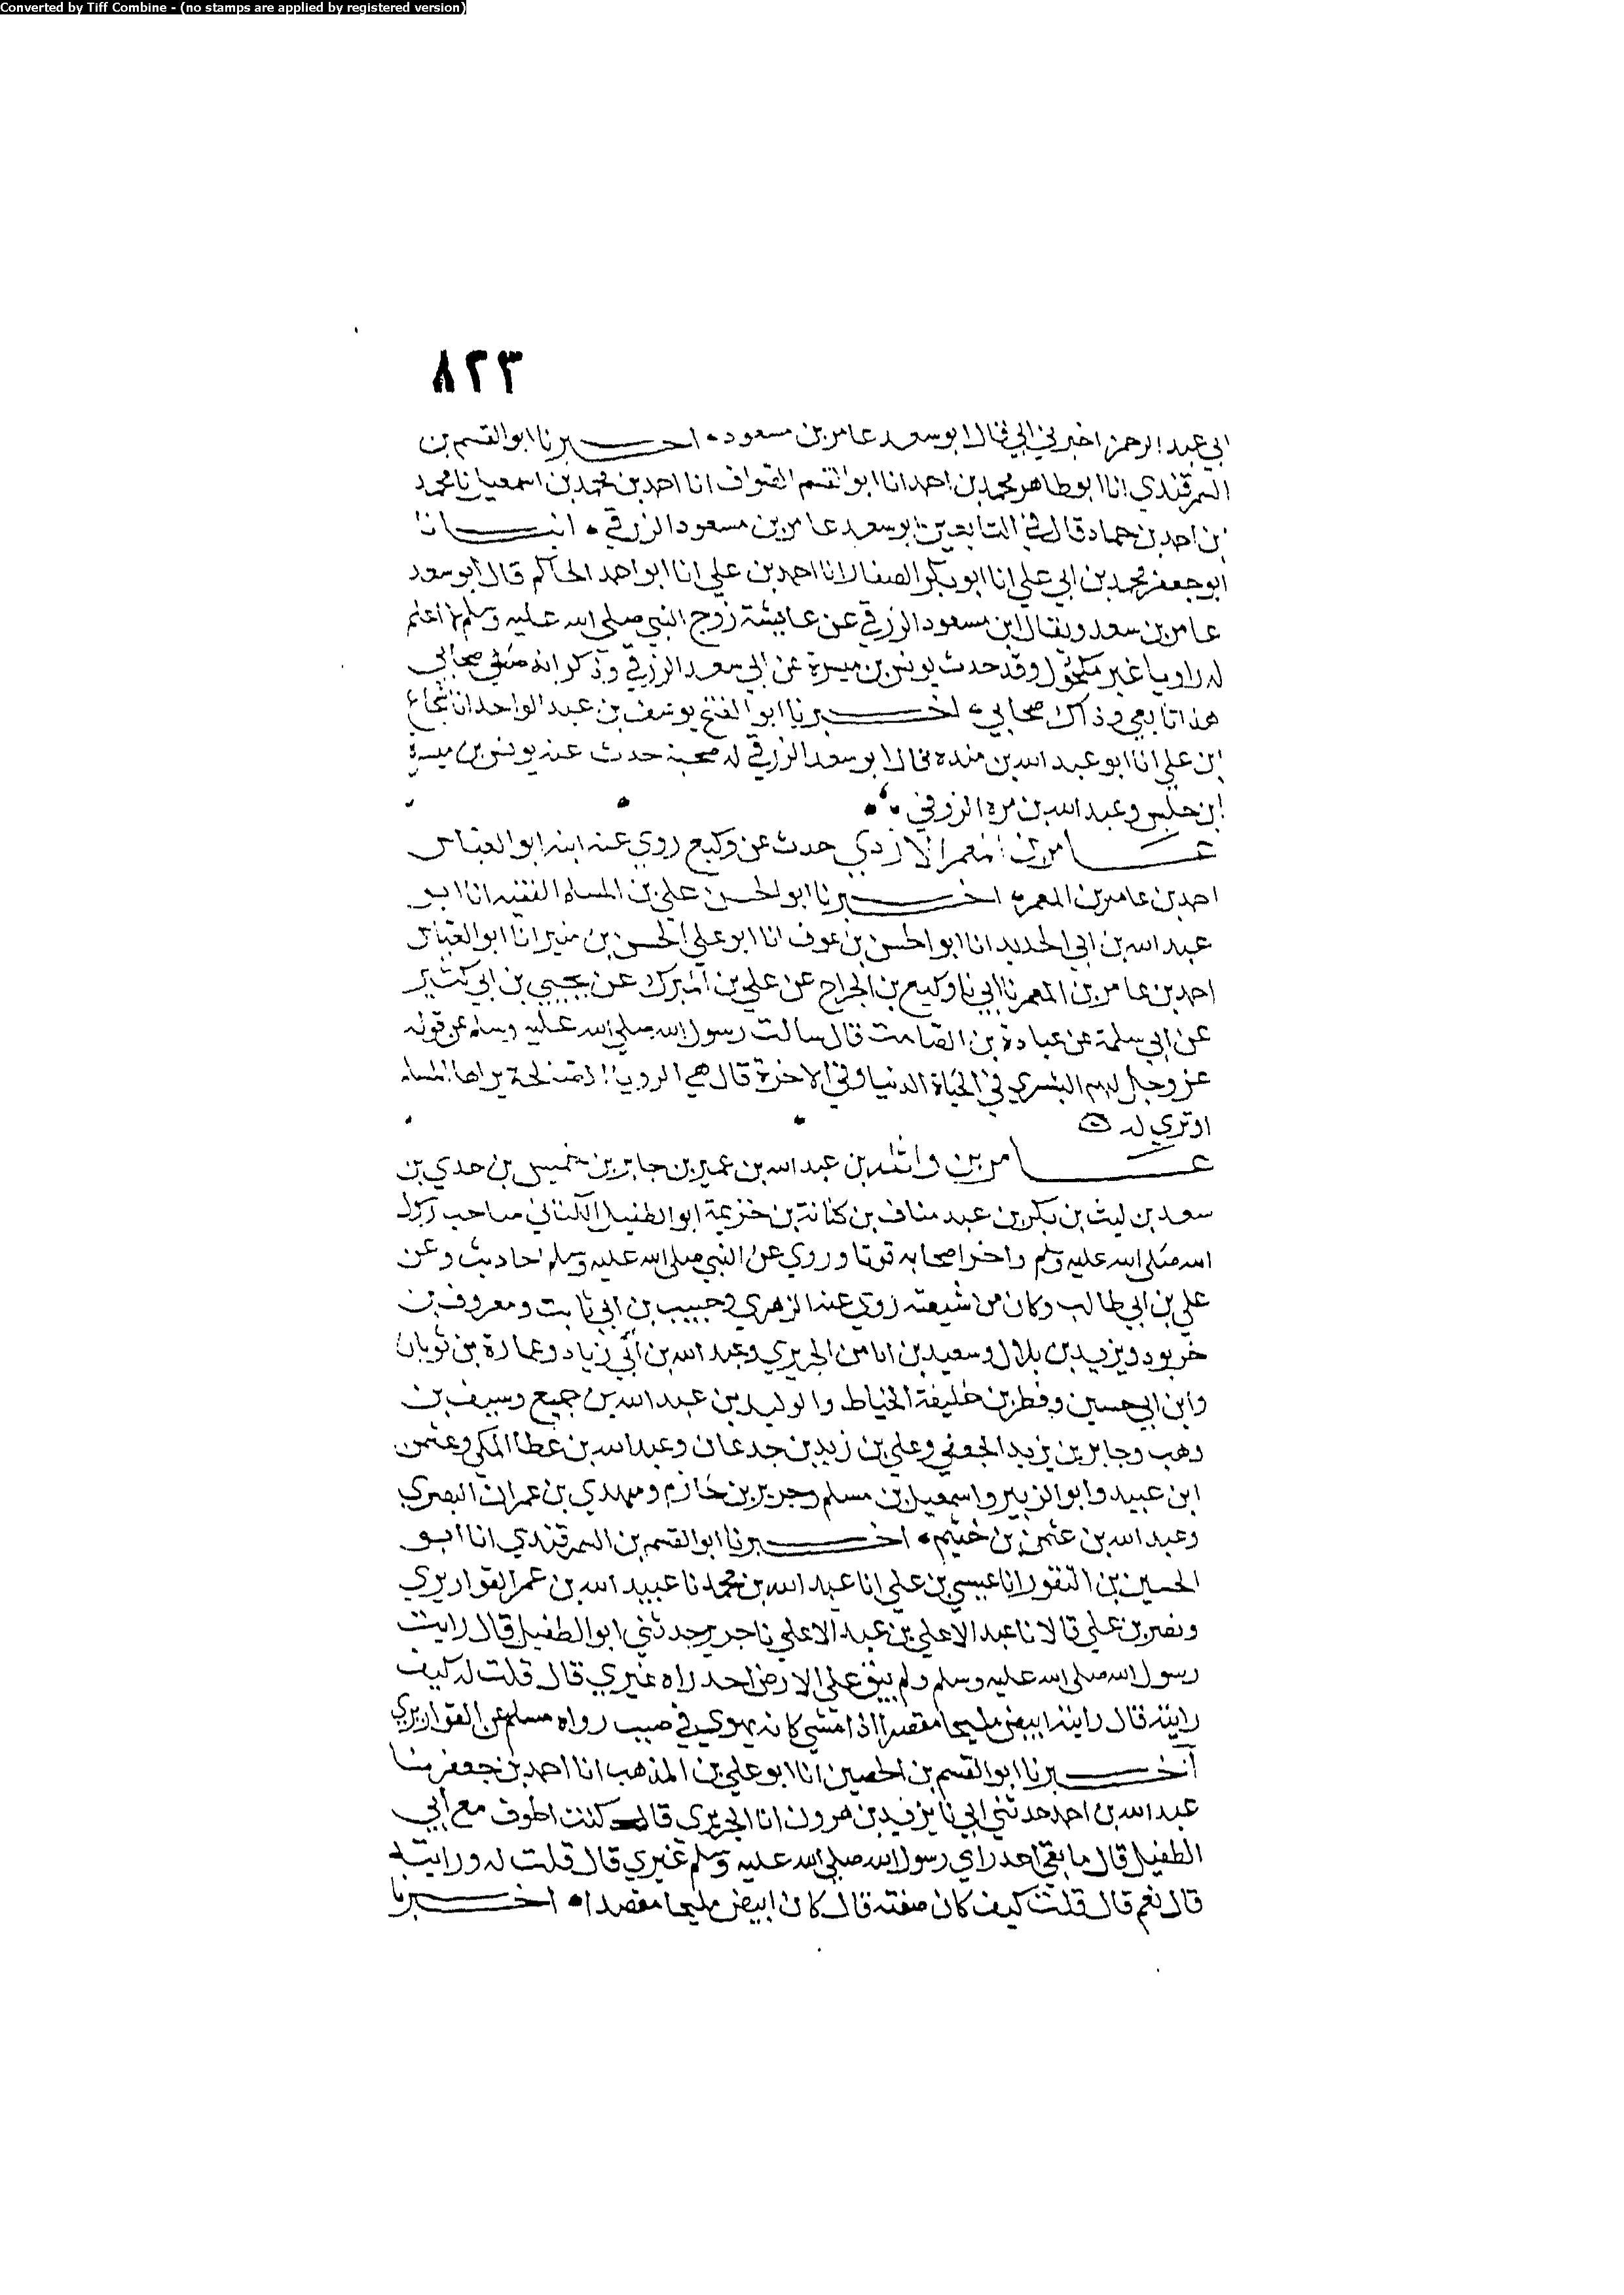 Converted by Tiff Combine - (no stamps are applied by registered version)
٨٢٣
ابي عبد الرحمن اخبرني ابي قال ابو سعد عامر بن مسعود اخبرنا ابو القسم بن
السمرقندي انا ابو طاهر محمد بن احمد انا ابو القسم الصواف انا احمد بن محمد بن اسمعيل نا محمد
بن احمد بن حماد قال في التابعين ابو سعد عامر بن مسعود الزرقي انبانا
ابو جعفر محمد بن ابي علي انا ابو بكر الصفار انا احمد بن علي انا ابو احمد الحاكم قال ابو سعد
عامر بن سعد ويقال ابن مسعود الزرقي عن عايشة زوج النبي صلى الله عليه وسلم لا اعلم
له راويا غير مكحول وقد حدث يونس بن ميسرة عن ابي سعد الزرقي وذكر انه صحابي
هذا تابعي وذاك صحابي اخبرنا ابو الفتح يوسف بن عبد الواحد انا شجاع
بن علي انا ابو عبد الله بن منده قال ابو سعد الزرقي له صحبة حدث عنه يونس بن ميسرة
ابن حلبس وعبد الله بن مره الزوقي
عامر بن المعمر الازدي حدث عن وكيع روي عنه ابنه ابو العباس
احمد بن عامر بن المعمر اخبرنا ابو الحسن علي بن المسلم الفقيه انا ابو
عبد الله بن ابي الحديد انا ابو الحسن بن عوف انا ابو علي الحسن بن منير انا ابو العباس
احمد بن عامر بن المعمر نا ابي نا وكيع بن الجراح عن علي بن المبرك عن يحيي بن ابي كثير
عن ابي سلمة عن عبادة بن الصامت قال سالت رسول الله صلى الله عليه وسلم عن قوله
عز وجل لهم البشري في الحياة الدنيا وفي الاخرة قال هي الرويا الصالحة يراها المسلم
او تري له
عامر بن واثله بن عبد الله بن عمير بن جابر بن خميس بن حدي بن
سعد بن ليث بن بكر بن عبد مناف بن كنانة بن خزيمة ابو الطفيل الكناني صاحب رسول
الله صلى الله عليه وسلم واخر اصحابه موتا وروي عن النبي صلى الله عليه وسلم احاديث وعن
علي بن ابي طالب وكان من شيعته روي عنه الزهري وحبيب بن ابي ثابت ومعروف بن
خربود ويزيد بن بلال وسعيد بن اياس الجريري وعبد الله بن ابي زياد وعمارة بن ثوبان
وابن ابي حسين وفطر بن خليفة الخياط والوليد بن عبد الله بن جميع وسيف بن
وهب وجابر بن يزيد الجعفي وعلي بن زيد بن جدعان وعبد الله بن عطا المكي وعثمن
ابن عبيد وابو الزبير واسمعيل بن مسلم وجرير بن حازم ومهدي بن عمران البصري
وعبد الله بن عثمن بن خثيم اخبرنا ابو القسم بن السمرقندي انا ابو
الحسين بن النقور انا عيسي بن علي انا عبد الله بن محمد نا عبيد الله بن عمر القواريري
ونصر بن علي قالا نا عبد الاعلي بن عبد الاعلي نا جرير حدثني ابو الطفيل قال رايت
رسول الله صلى الله عليه وسلم ولم يبق علي الارض احد راه غيري قال قلت له كيف
رايته قال رايته ابيض مليحا مقصدا اذا مشي كانه يهوي في صبب رواه مسلم عن القواريري
اخبرنا ابو القسم بن الحصين انا ابو علي بن المذهب انا احمد بن جعفر نا
عبد الله بن احمد حدثني ابي نا يزيد بن هرون انا الجريري قال كنت اطوف مع ابي
الطفيل قال ما بقي احد راي رسول الله صلى الله عليه وسلم غيري قال قلت له ورايته
قال نعم قال قلت كيف كان صفته قال كان ابيض مليحا مقصدا اخبرنا